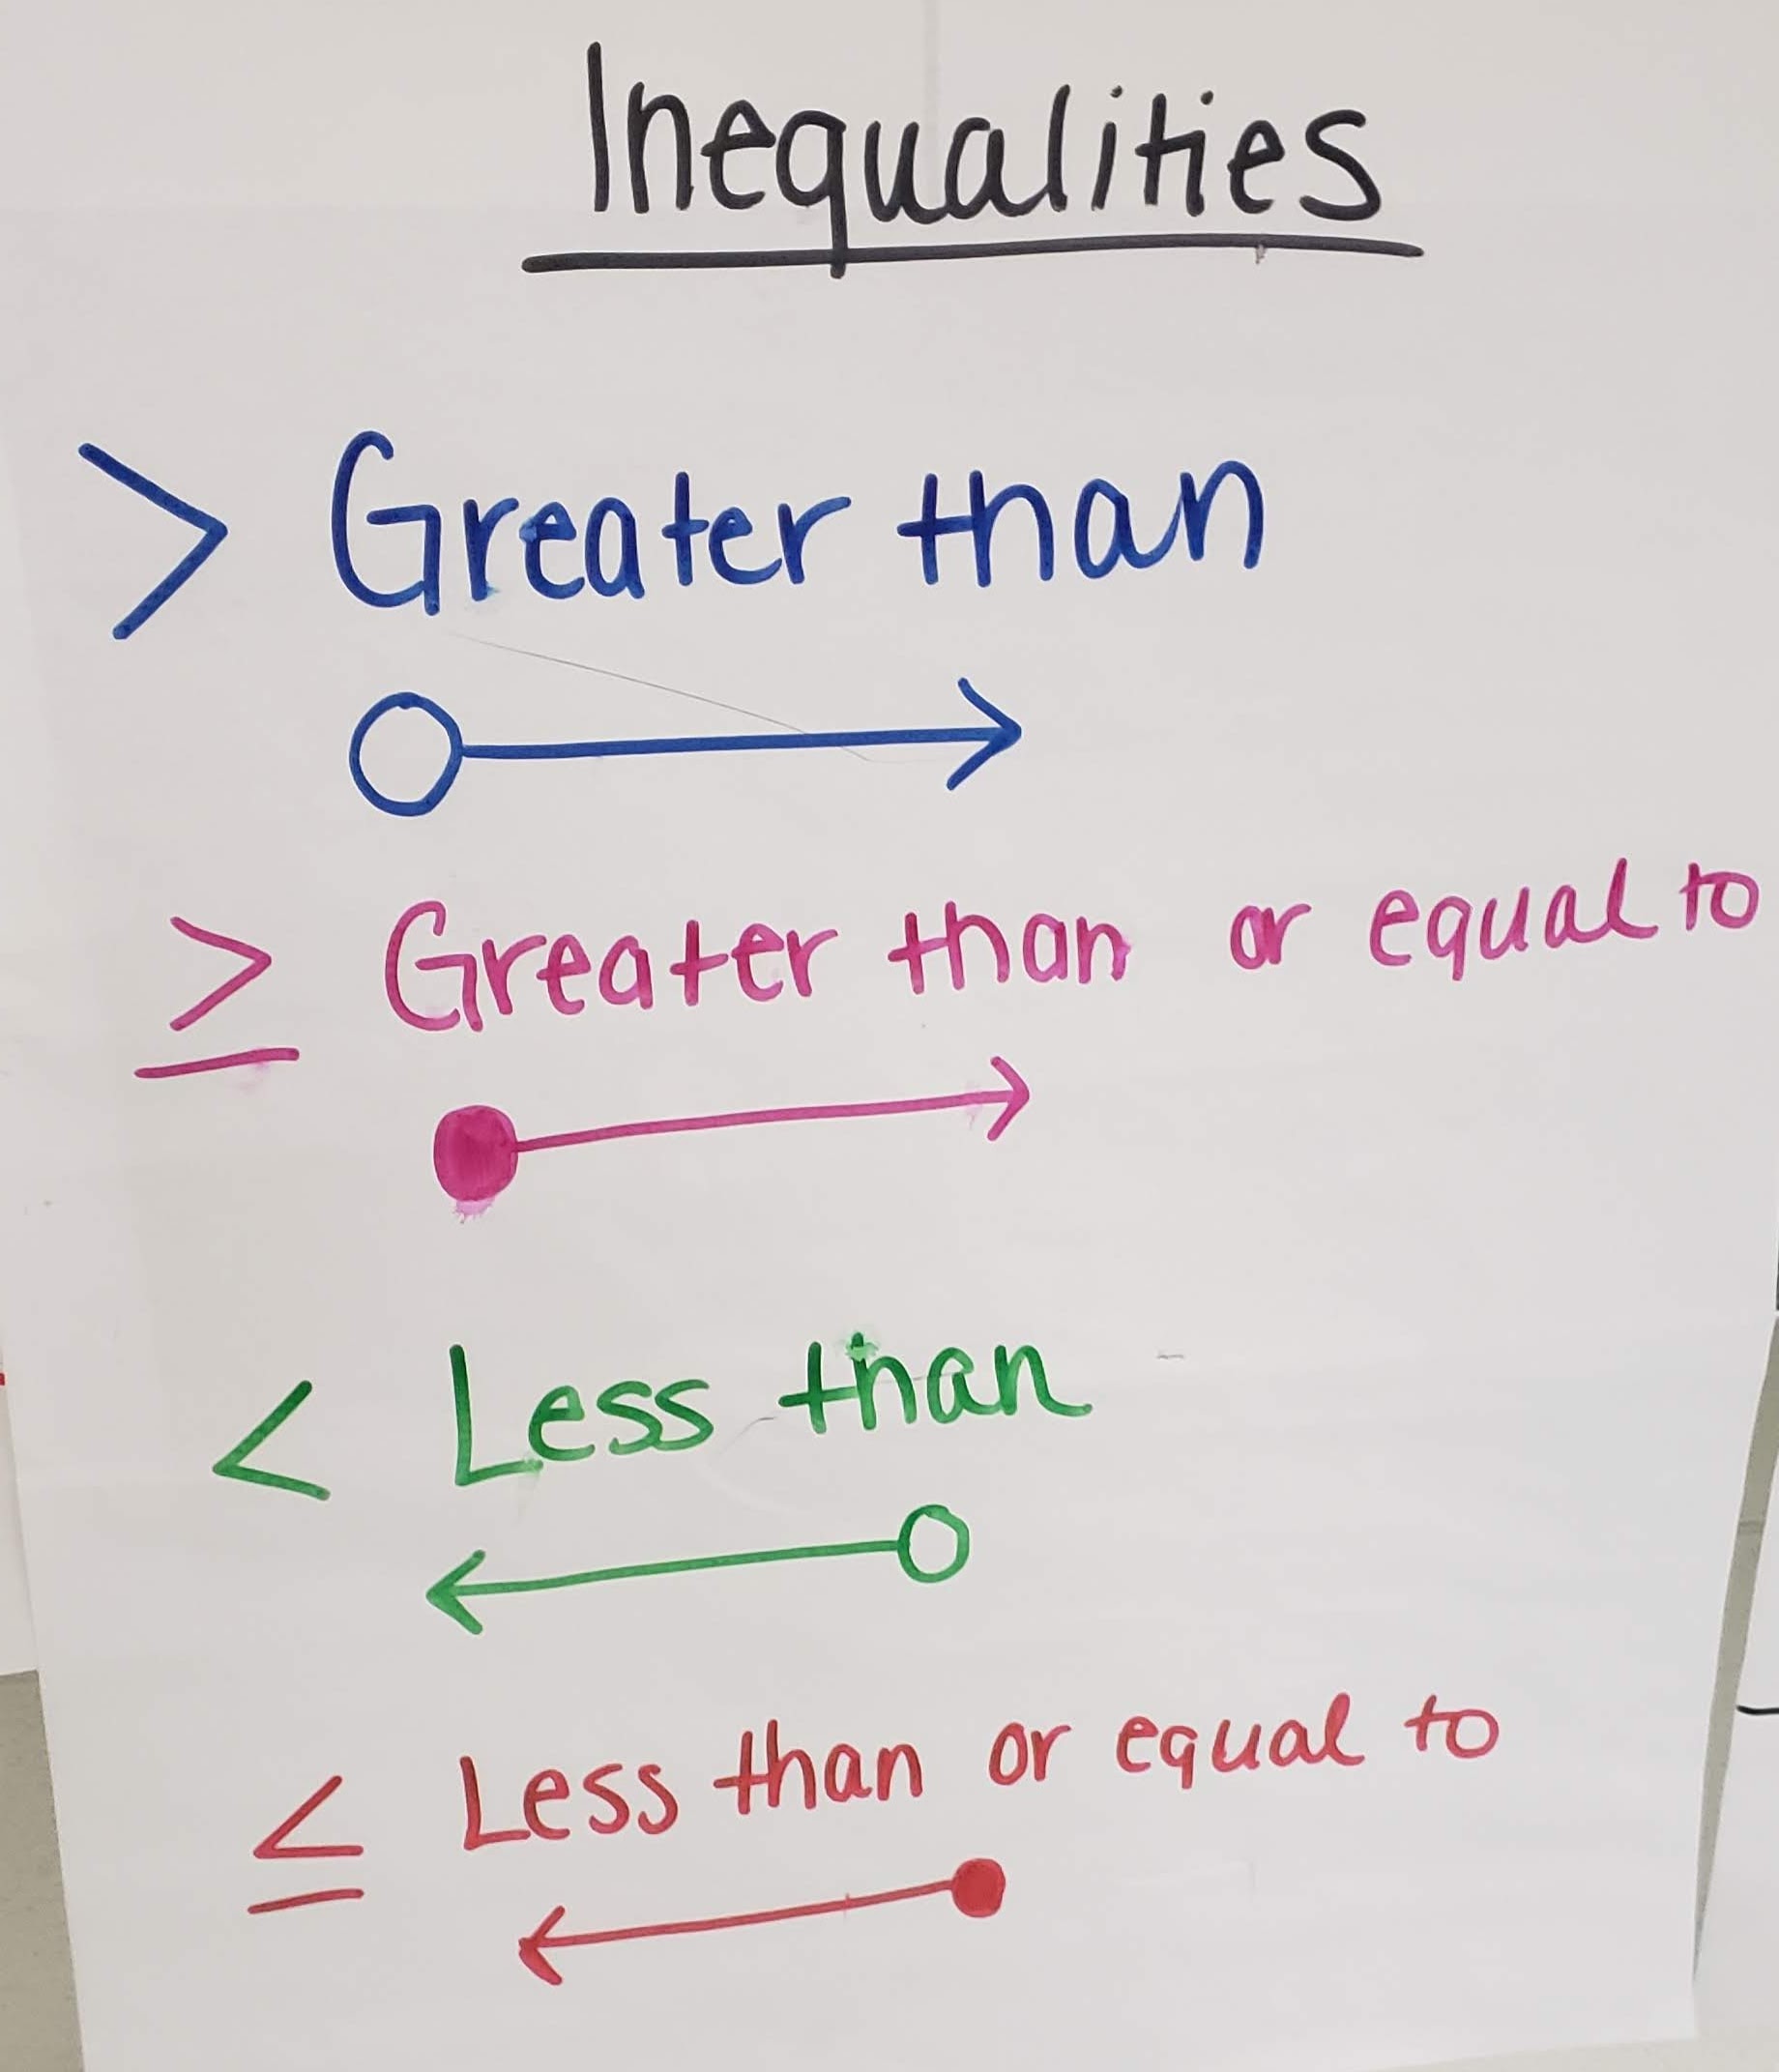 Inequalities
> Greater than
≥ Greater than or equal to
< Less than
≤ Less than or equal to